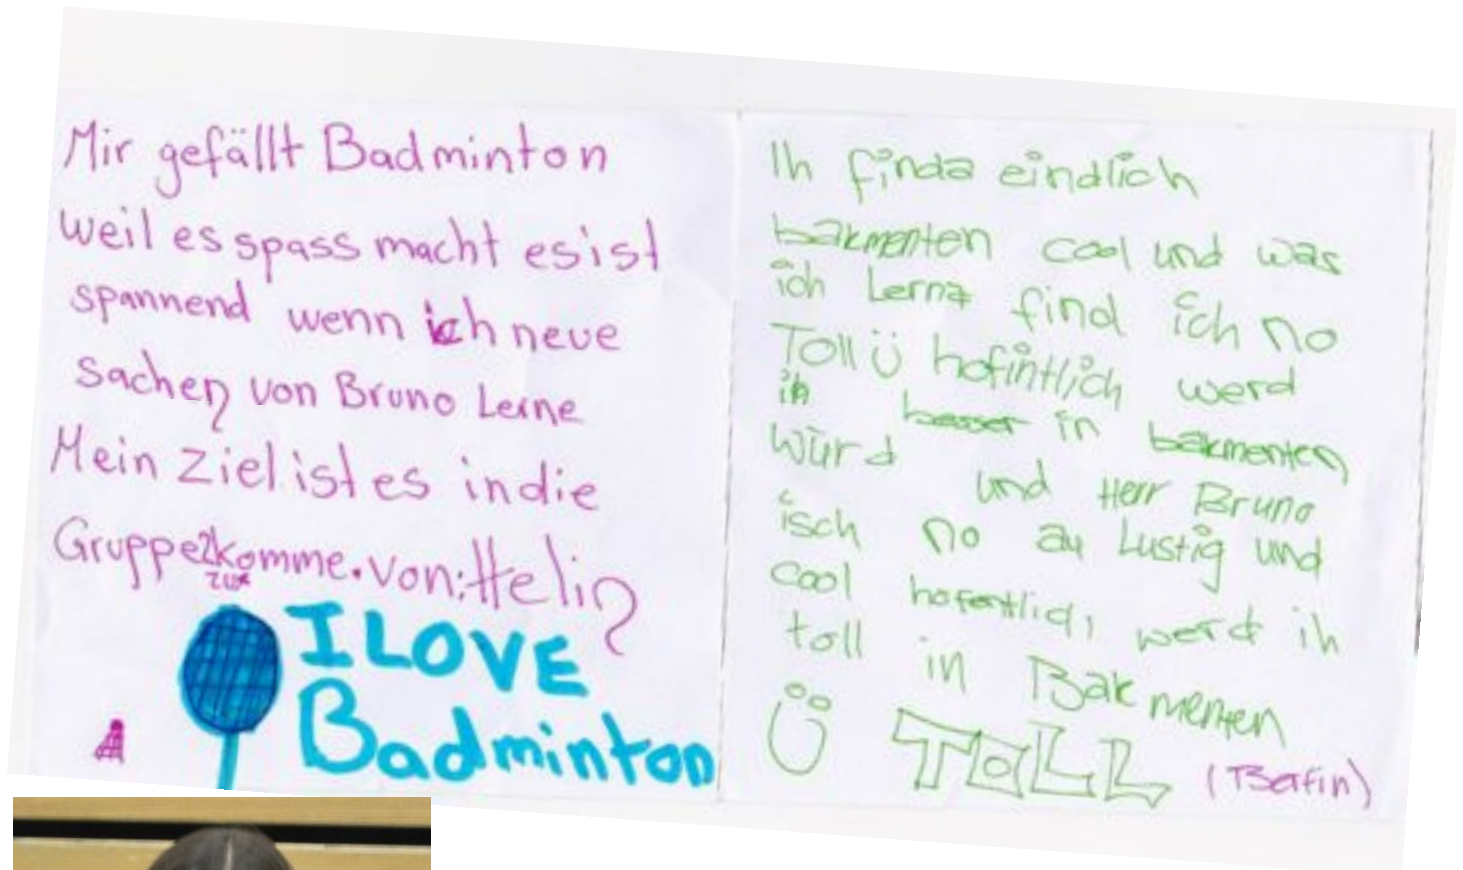 Mir gefällt Badminton
weil es spass macht es ist
spannend wenn ich neue
sachen von Bruno Lerne
Mein Ziel ist es in die
Gruppe 2 komme. von: Helin
zur
I LOVE
Badminton
Ih finda eindlich
bakmenten cool und was
ich Lerna find ich no
Toll Ü hofintlich werd
ih besser in bakmenten
würd und Herr Bruno
isch no au Lustig und
cool hofentlich werd ih
toll in Bakmenten
Ü TOLL (Berfin)